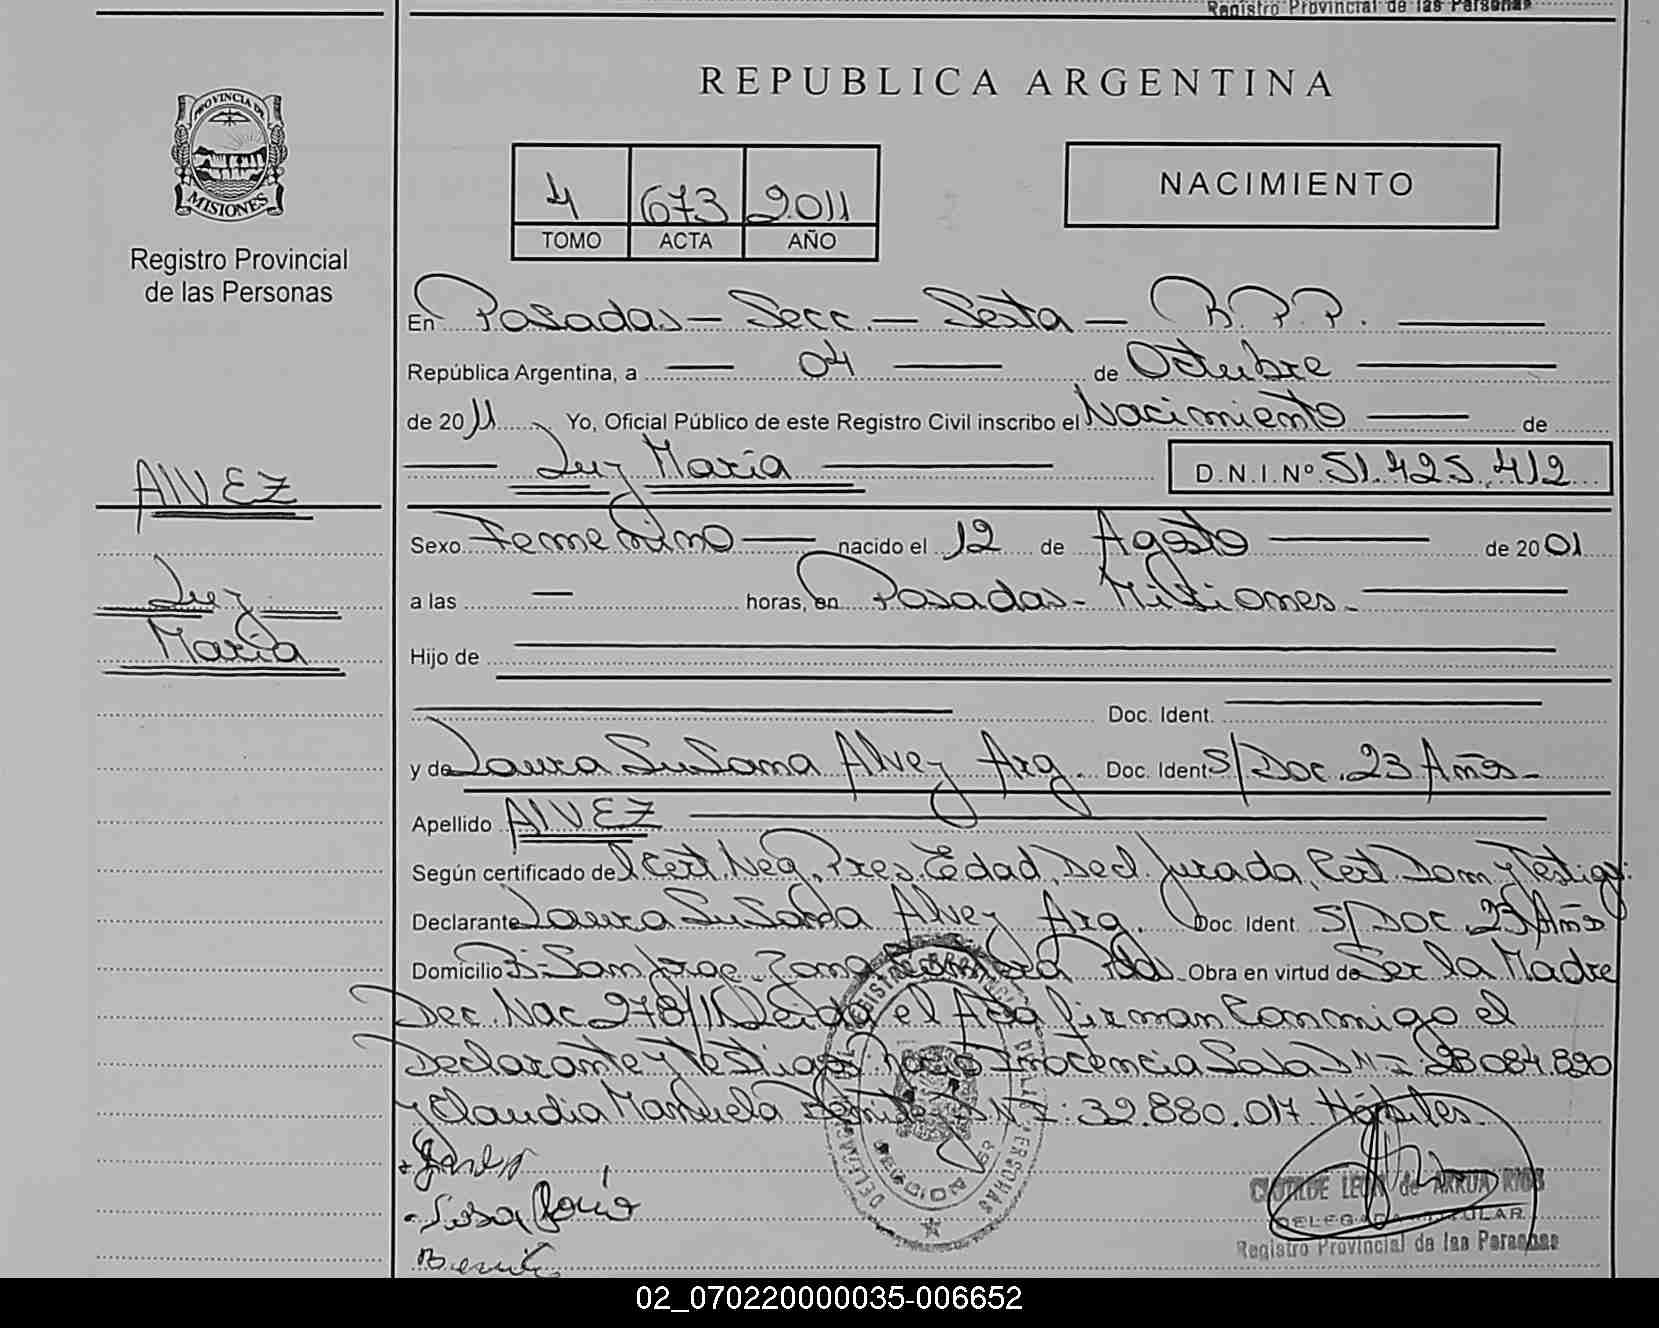 Registro Provincial de las Personas
REPUBLICA ARGENTINA
PROVINCIA DE
MISIONES
Registro Provincial
de las Personas
4 673 2011
TOMO ACTA AÑO
NACIMIENTO
En Posadas - Secc. - Sexta - R.P.P.
República Argentina, a 04 de Octubre
de 2011 Yo, Oficial Público de este Registro Civil inscribo el Nacimiento de
Luz María D.N.I. Nº 51.425.412
ALVEZ
Luz
María
Sexo Femenino nacido el 12 de Agosto de 2001
a las — horas, en Posadas - Misiones -
Hijo de
Doc. Ident.
y de Laura Susana Alvez Arg. Doc. Ident S/Doc. 23 Años -
Apellido ALVEZ
Según certificado del Cert. Neg, Pres. Edad, Decl. Jurada, Cert. Dom y Testigs:
Declarante Laura Susana Alvez Arg. Doc. Ident. S/Doc. 23 Años
Domicilio Bº San Jorge Zona Pdas. Obra en virtud de Ser la Madre
Dec. Nac 278/11 Leida el Acta firman Conmigo el
Declarante y Testigos: Inocencia Sosa DNI: 28.084.890
y Claudia Manuela DNI: 32.880.017 Hábiles.
Sosa
CLOTILDE LEON de ARRUA RIOS
DELEGADA TITULAR
Registro Provincial de las Personas
02_070220000035-006652